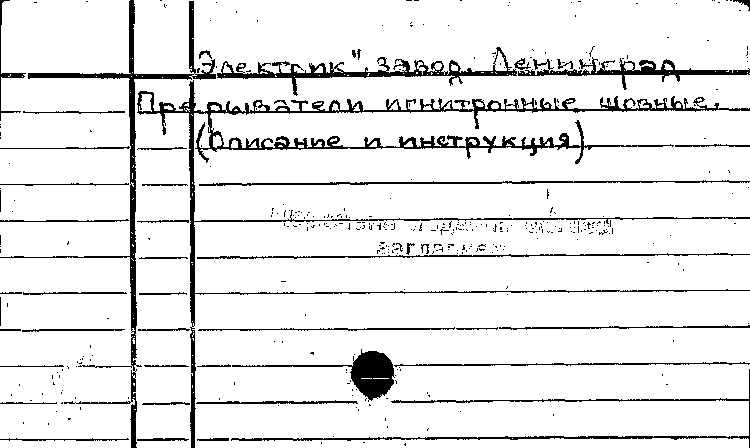 Электрик", завод. Ленинград
Прерыватели игнитронные шовные.
(Описание и инструкция).
заглавием